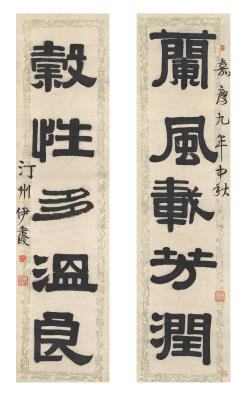 蘭風載芳潤
嘉慶九年中秋
穀性多溫良
汀州伊秉綬